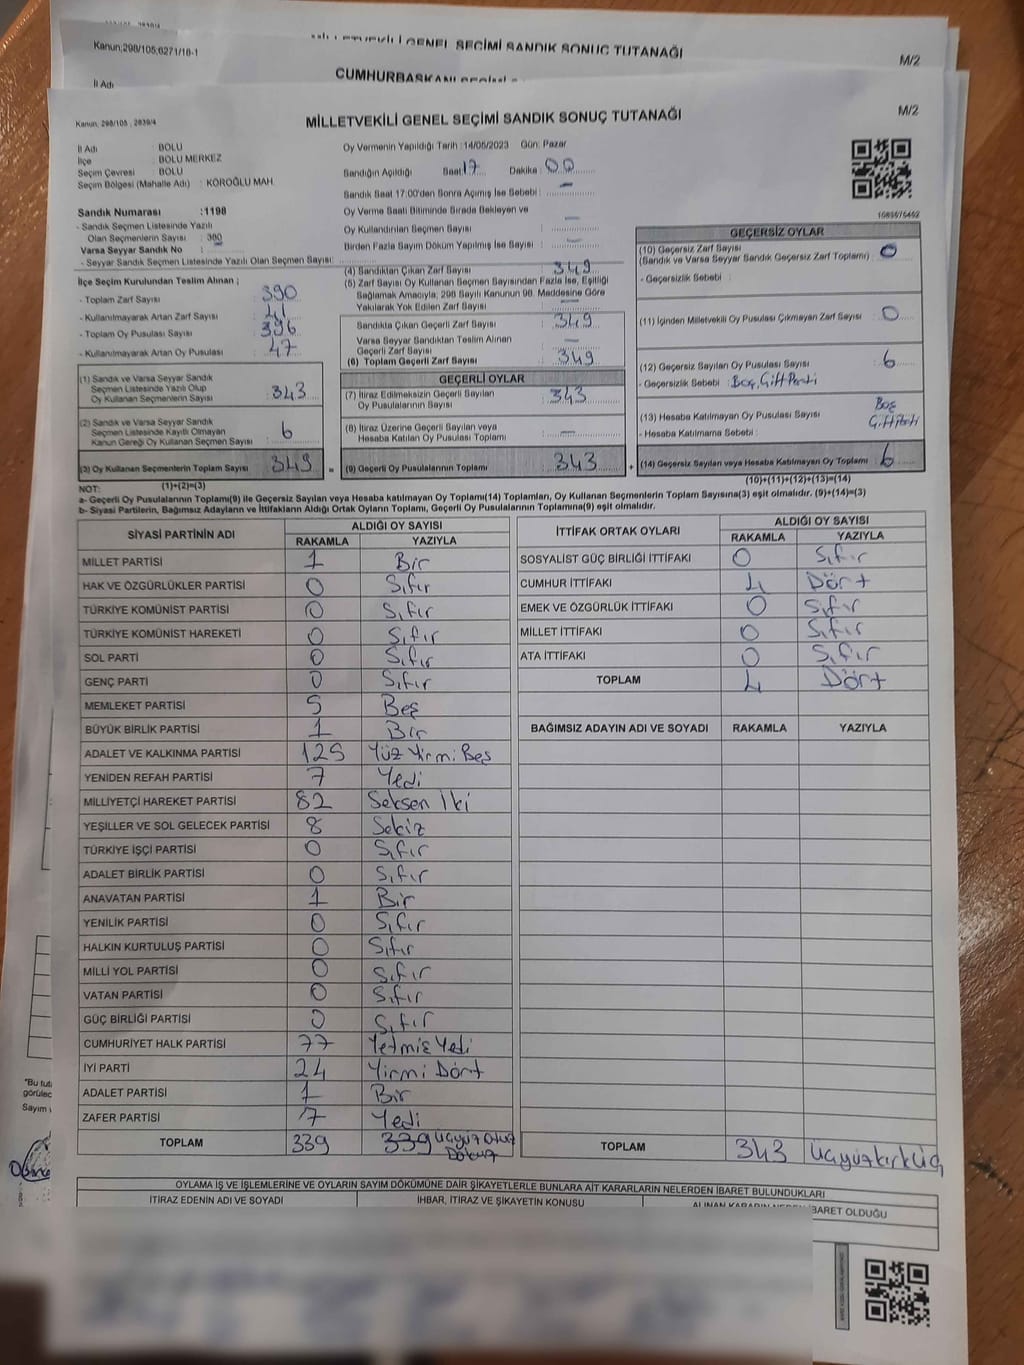 Kanun;298/105;6271/18-1
MİLLETVEKİLİ GENEL SEÇİMİ SANDIK SONUÇ TUTANAĞI
M/2
İl Adı
CUMHURBAŞKANI SEÇİMİ
Kanun; 298/105 , 2839/4
MİLLETVEKİLİ GENEL SEÇİMİ SANDIK SONUÇ TUTANAĞI
M/2
İl Adı : BOLU
İlçe : BOLU MERKEZ
Seçim Çevresi : BOLU
Seçim Bölgesi (Mahalle Adı) : KÖROĞLU MAH.
Sandık Numarası :1198
- Sandık Seçmen Listesinde Yazılı
Olan Seçmenlerin Sayısı : 380
Varsa Seyyar Sandık No :
- Seyyar Sandık Seçmen Listesinde Yazılı Olan Seçmen Sayısı:
Oy Vermenin Yapıldığı Tarih :14/05/2023 Gün: Pazar
Sandığın Açıldığı Saat: 17 Dakika : 00
Sandık Saat 17:00'den Sonra Açımış İse Sebebi : —
Oy Verme Saati Bitiminde Sırada Bekleyen ve
Oy Kullandırılan Seçmen Sayısı : —
Birden Fazla Sayım Döküm Yapılmış İse Sayısı : —
İlçe Seçim Kurulundan Teslim Alınan ;
- Toplam Zarf Sayısı : 390
- Kullanılmayarak Artan Zarf Sayısı : 41
- Toplam Oy Pusulası Sayısı : 396
- Kullanılmayarak Artan Oy Pusulası : 47
(1) Sandık ve Varsa Seyyar Sandık
Seçmen Listesinde Yazılı Olup
Oy Kullanan Seçmenlerin Sayısı : 343
(2) Sandık ve Varsa Seyyar Sandık
Seçmen Listesinde Kayıtlı Olmayan
Kanun Gereği Oy Kullanan Seçmen Sayısı : 6
(3) Oy Kullanan Seçmenlerin Toplam Sayısı 349 =
(1)+(2)=(3)
(4) Sandıktan Çıkan Zarf Sayısı : 349
(5) Zarf Sayısı Oy Kullanan Seçmen Sayısından Fazla İse, Eşitliği
Sağlamak Amacıyla, 298 Sayılı Kanunun 98. Maddesine Göre
Yakılarak Yok Edilen Zarf Sayısı : —
Sandıkta Çıkan Geçerli Zarf Sayısı : 349
Varsa Seyyar Sandıktan Teslim Alınan
Geçerli Zarf Sayısı : —
(6) Toplam Geçerli Zarf Sayısı : 349
GEÇERLİ OYLAR
(7) İtiraz Edilmeksizin Geçerli Sayılan
Oy Pusulalarının Sayısı : 343
(8) İtiraz Üzerine Geçerli Sayılan veya
Hesaba Katılan Oy Pusulası Toplamı : —
(9) Geçerli Oy Pusulalarının Toplamı : 343 +
1083575452
GEÇERSİZ OYLAR
(10) Geçersiz Zarf Sayısı
(Sandık ve Varsa Seyyar Sandık Geçersiz Zarf Toplamı) : 0
- Geçersizlik Sebebi :
(11) İçinden Milletvekili Oy Pusulası Çıkmayan Zarf Sayısı : 0
(12) Geçersiz Sayılan Oy Pusulası Sayısı : 6
- Geçersizlik Sebebi : Boş, Çift Parti
(13) Hesaba Katılmayan Oy Pusulası Sayısı : Boş
Çift Parti
- Hesaba Katılmama Sebebi :
(14) Geçersiz Sayılan veya Hesaba Katılmayan Oy Toplamı : 6
(10)+(11)+(12)+(13)=(14)
NOT:
a- Geçerli Oy Pusulalarının Toplamı(9) ile Geçersiz Sayılan veya Hesaba katılmayan Oy Toplamı(14) Toplamları, Oy Kullanan Seçmenlerin Toplam Sayısına(3) eşit olmalıdır. (9)+(14)=(3)
b- Siyasi Partilerin, Bağımsız Adayların ve İttifakların Aldığı Ortak Oyların Toplamı, Geçerli Oy Pusulalarının Toplamına(9) eşit olmalıdır.
SİYASİ PARTİNİN ADI ALDIĞI OY SAYISI
RAKAMLA YAZIYLA
MİLLET PARTİSİ 1 Bir
HAK VE ÖZGÜRLÜKLER PARTİSİ 0 Sıfır
TÜRKİYE KOMÜNİST PARTİSİ 0 Sıfır
TÜRKİYE KOMÜNİST HAREKETİ 0 Sıfır
SOL PARTİ 0 Sıfır
GENÇ PARTİ 0 Sıfır
MEMLEKET PARTİSİ 5 Beş
BÜYÜK BİRLİK PARTİSİ 1 Bir
ADALET VE KALKINMA PARTİSİ 125 Yüz Yirmi Beş
YENİDEN REFAH PARTİSİ 7 Yedi
MİLLİYETÇİ HAREKET PARTİSİ 82 Seksen İki
YEŞİLLER VE SOL GELECEK PARTİSİ 8 Sekiz
TÜRKİYE İŞÇİ PARTİSİ 0 Sıfır
ADALET BİRLİK PARTİSİ 0 Sıfır
ANAVATAN PARTİSİ 1 Bir
YENİLİK PARTİSİ 0 Sıfır
HALKIN KURTULUŞ PARTİSİ 0 Sıfır
MİLLİ YOL PARTİSİ 0 Sıfır
VATAN PARTİSİ 0 Sıfır
GÜÇ BİRLİĞİ PARTİSİ 0 Sıfır
CUMHURİYET HALK PARTİSİ 77 Yetmiş Yedi
İYİ PARTİ 24 Yirmi Dört
ADALET PARTİSİ 1 Bir
ZAFER PARTİSİ 7 Yedi
TOPLAM 339 339 Üçyüz Otuz
Dokuz
İTTİFAK ORTAK OYLARI ALDIĞI OY SAYISI
RAKAMLA YAZIYLA
SOSYALİST GÜÇ BİRLİĞİ İTTİFAKI 0 Sıfır
CUMHUR İTTİFAKI 4 Dört
EMEK VE ÖZGÜRLÜK İTTİFAKI 0 Sıfır
MİLLET İTTİFAKI 0 Sıfır
ATA İTTİFAKI 0 Sıfır
TOPLAM 4 Dört
BAĞIMSIZ ADAYIN ADI VE SOYADI RAKAMLA YAZIYLA
TOPLAM 343 Üçyüzkırküç
"Bu tuta
görülec
Sayım v
OYLAMA İŞ VE İŞLEMLERİNE VE OYLARIN SAYIM DÖKÜMÜNE DAİR ŞİKAYETLERLE BUNLARA AİT KARARLARIN NELERDEN İBARET BULUNDUKLARI
İTİRAZ EDENİN ADI VE SOYADI İHBAR, İTİRAZ VE ŞİKAYETİN KONUSU ALINAN KARARIN NEDEN İBARET OLDUĞU